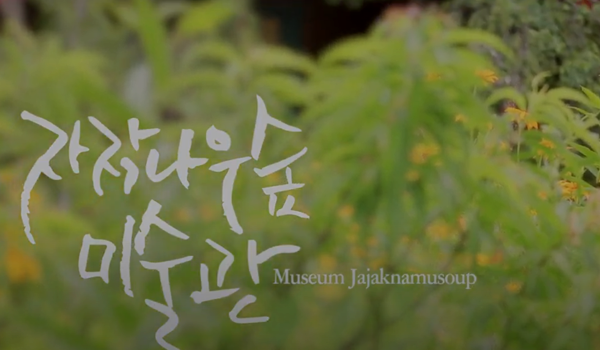 자작나무숲
미술관
Museum Jajaknamusoup